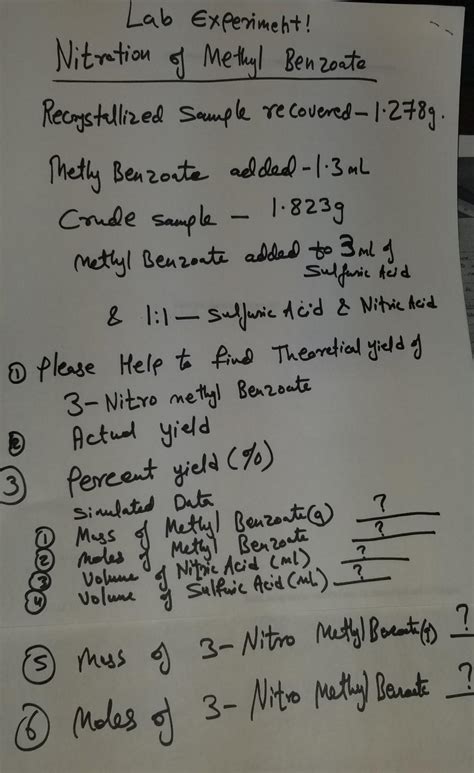 Lab Experiment!
Nitration of Methyl Benzoate
Recrystallized Sample recovered - 1.278g.
Methy Benzoate added - 1.3 mL
Crude sample - 1.823g
Methyl Benzoate added to 3 ml of
Sulfuric Acid
& 1:1 - Sulfuric Acid & Nitric Acid
① Please Help to find Theoretical yield of
3-Nitro methyl Benzoate
② Actual yield
③ Percent yield (%)
Simulated Data
① Mass of Methyl Benzoate(g) ?
② Moles of Methyl Benzoate ?
③ Volume of Nitric Acid (ml) ?
④ Volume of Sulfuric Acid (mL) ?
⑤ Mass of 3-Nitro Methyl Benzoate(g) ?
⑥ Moles of 3-Nitro Methyl Benzoate ?